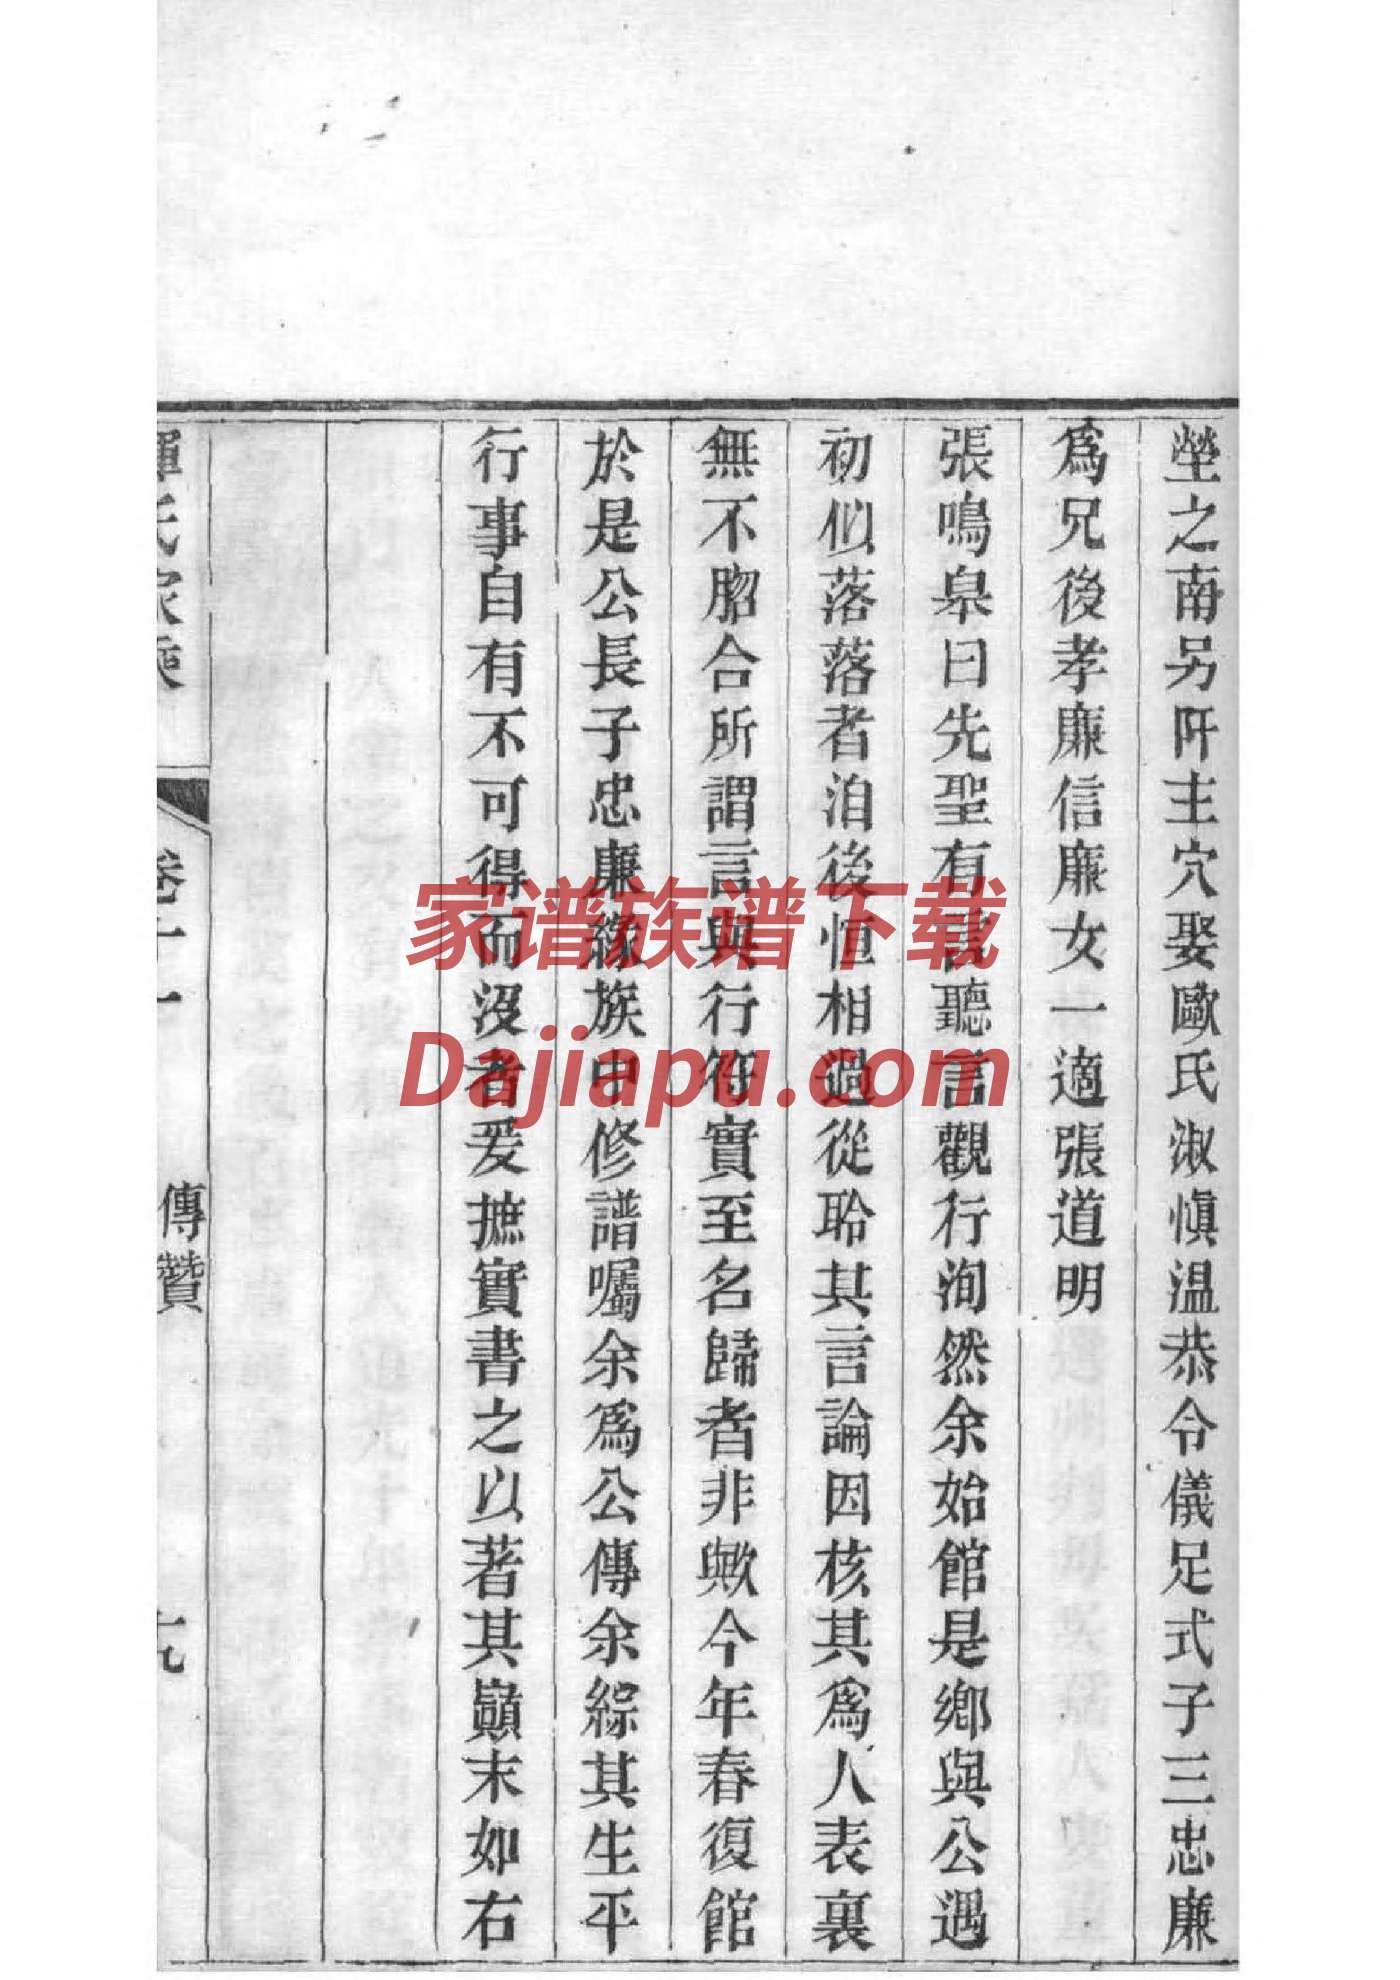 塋之南另阡主穴娶歐氏淑愼溫恭令儀足式子三忠廉
爲兄後孝廉信廉女一適張道明
張鳴臯曰先聖有言聽言觀行洵然余始館是鄉與公遇
初似落落者洎後恒相過從聆其言論因核其爲人表裏
無不脗合所謂言與行符實至名歸者非歟今年春復館
於是公長子忠廉緣族中修譜囑余爲公傳余綜其生平
行事自有不可得而沒者爰摭實書之以著其巔末如右
氏家乘
卷十一
傳贊
十九
家谱族谱下载
Dajiapu.com